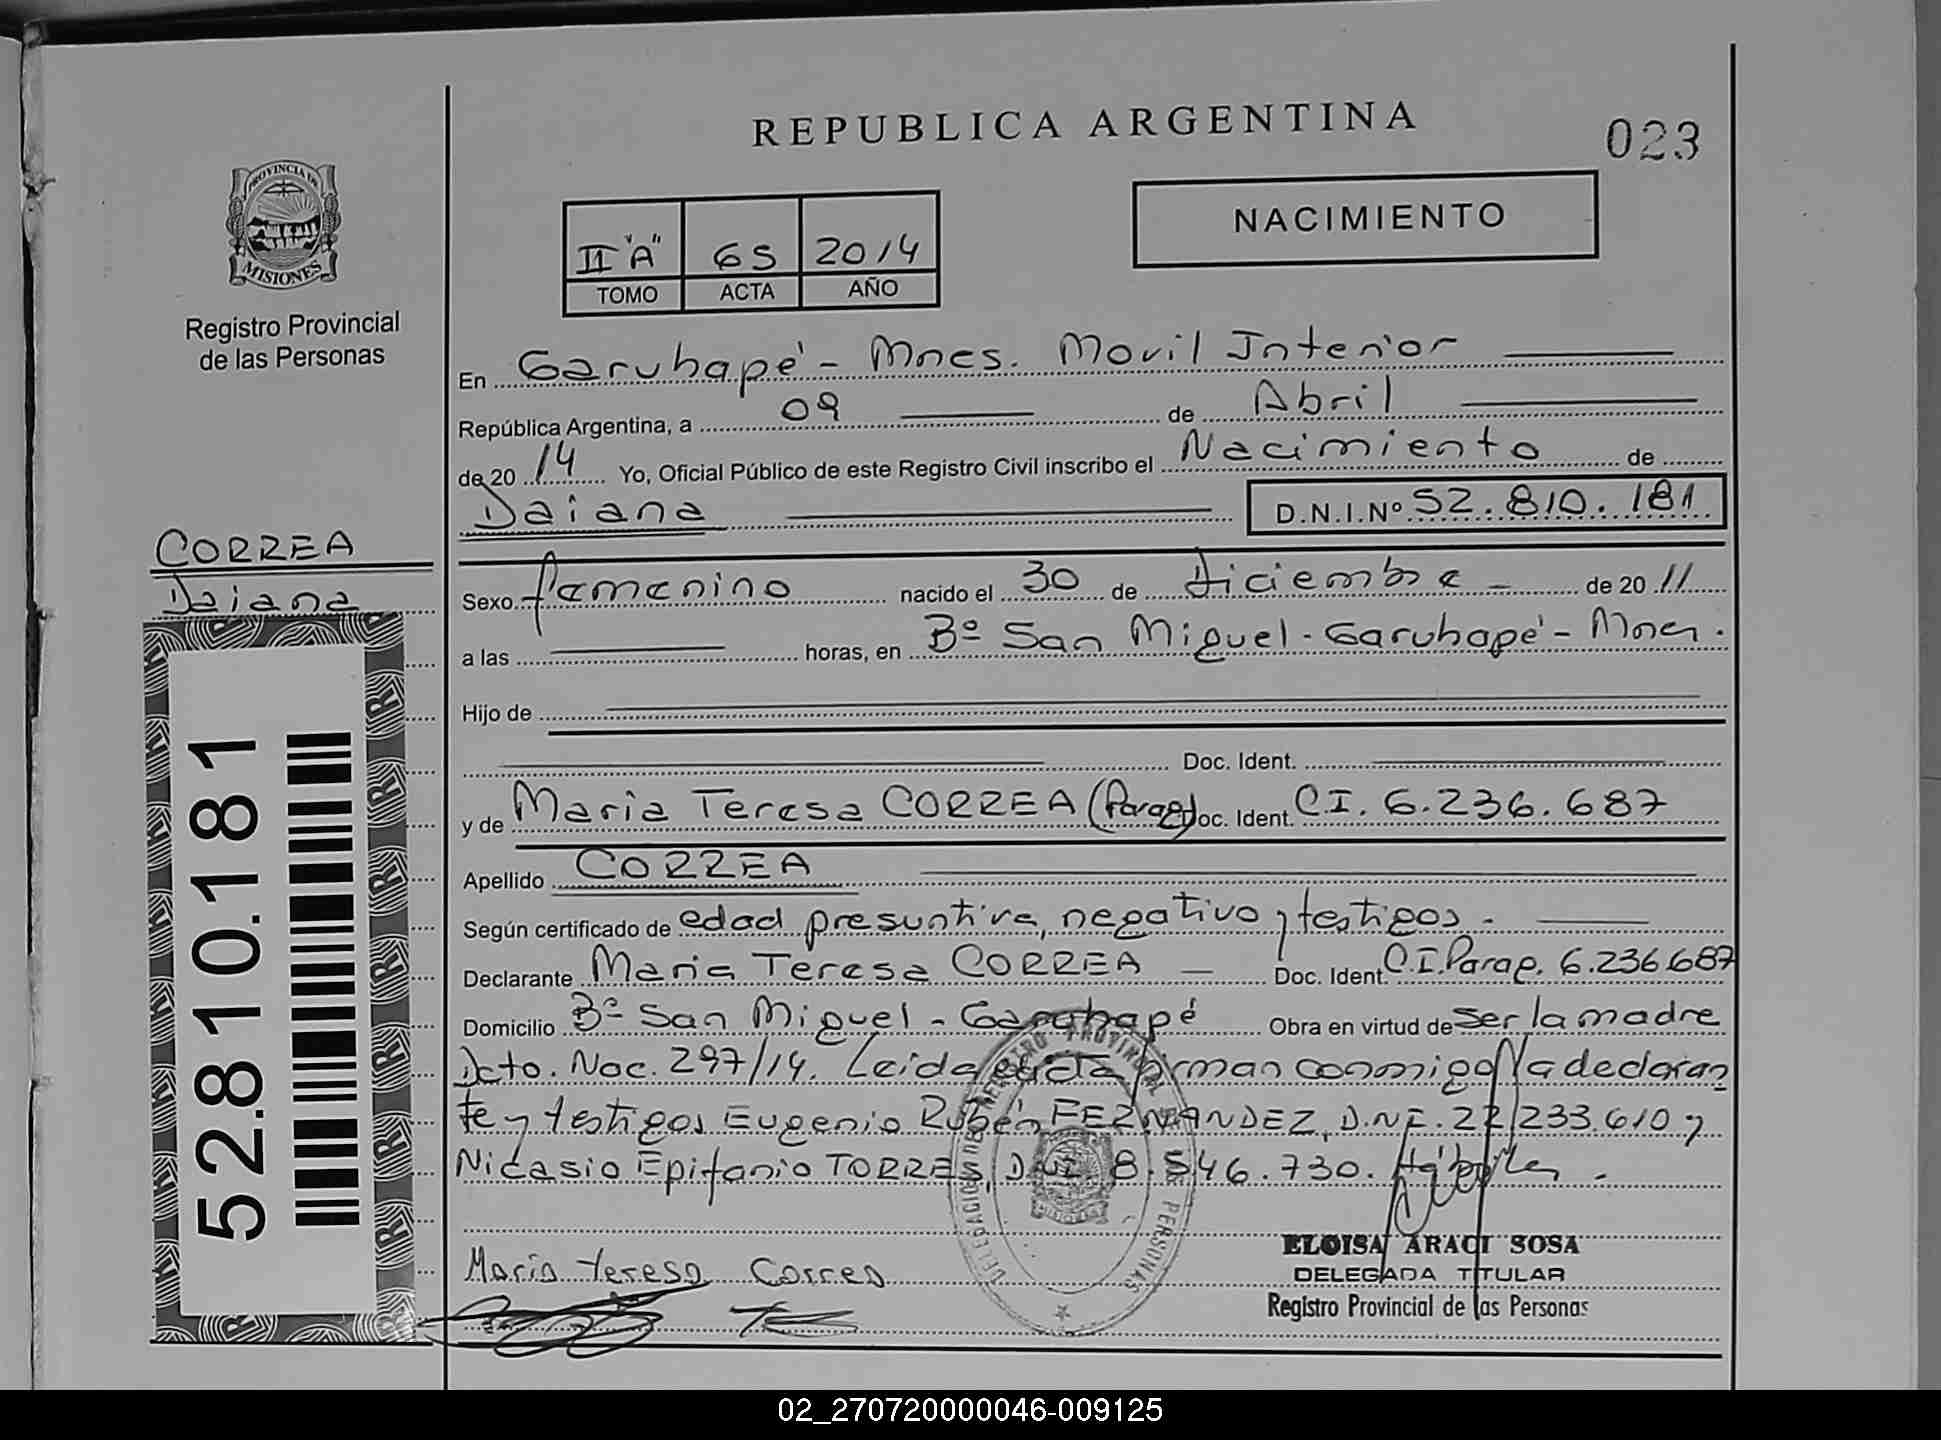 REPUBLICA ARGENTINA
023
PROVINCIA DE
MISIONES
Registro Provincial
de las Personas
II "A" 65 2014
TOMO ACTA AÑO
NACIMIENTO
En Garuhapé - Mnes. Movil Interior
República Argentina, a 09 de Abril
de 20 14 Yo, Oficial Público de este Registro Civil inscribo el Nacimiento de
Daiana D.N.I.Nº 52.810.181
CORREA
Daiana
Sexo femenino nacido el 30 de diciembre de 20 11
a las horas, en Bº San Miguel - Garuhapé - Mnes.
Hijo de
Doc. Ident.
y de Maria Teresa CORREA (Parag) Doc. Ident. C.I. 6.236.687
Apellido CORREA
Según certificado de edad presuntiva, negativo y testigos.
Declarante Maria Teresa CORREA Doc. Ident. C.I. Parag. 6.236.687
Domicilio Bº San Miguel - Garuhapé Obra en virtud de ser la madre
Dcto. Nac. 297/14. Leida el acta firman conmigo la declaran
te y testigos Eugenio Rubén FERNANDEZ, D.N.I. 22.233.610 y
Nicasio Epifanio TORRES, D.N.I. 8.546.730.
52.810.181
DELEGACION DEL REGISTRO PROVINCIAL DE PERSONAS
Maria teresa Correa
ELOISA ARACI SOSA
DELEGADA TITULAR
Registro Provincial de las Personas
02_270720000046-009125